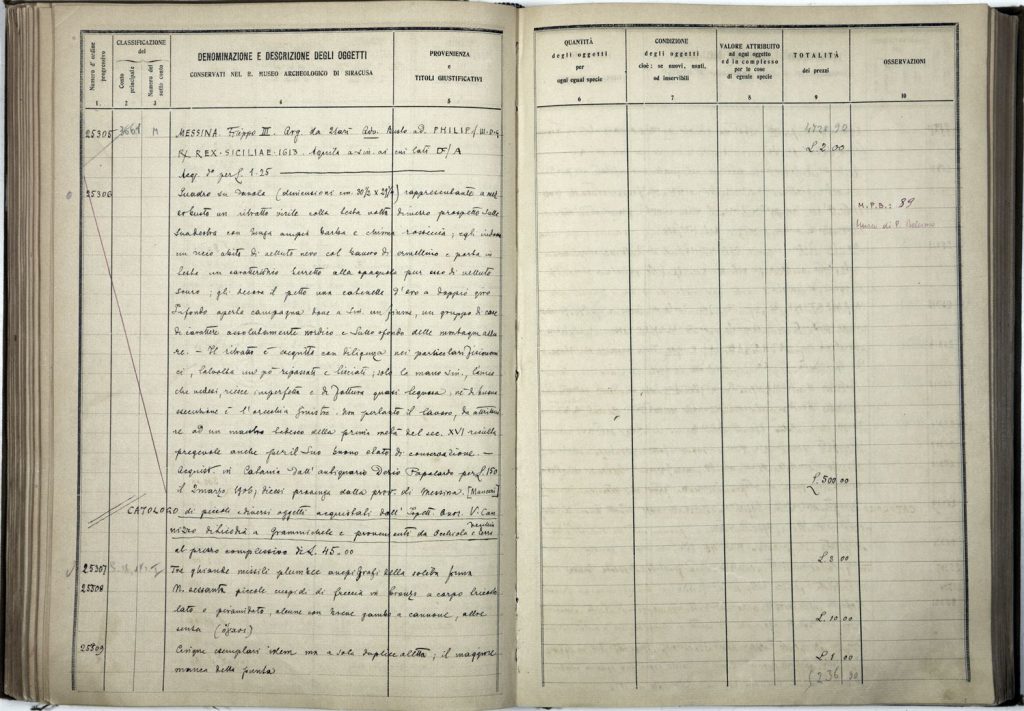 Numero d'ordine progressivo
CLASSIFICAZIONE
del
Conto principale
Numero del sotto conto
DENOMINAZIONE E DESCRIZIONE DEGLI OGGETTI
CONSERVATI NEL R. MUSEO ARCHEOLOGICO DI SIRACUSA
PROVENIENZA
e
TITOLI GIUSTIFICATIVI
1. 2 3 4 5
25305 M MESSINA. Filippo III. Arg. da 2 tarì Adv. Busto a D. PHILIP
REX·SICILIAE·1613. Aquila a sin. ai cui lati DF/A
Acq. per £ 1.25
25306 Quadro su tavola (dimensioni cm. 30½ x ) rappresentante a
busto un ritratto virile colla testa volta di mezzo prospetto sulla
sua destra con lunga ampia barba e chioma rossiccia; egli indossa
un ricco abito di velluto nero col bavero di ermellino e porta in
testa un caratteristico berretto alla spagnola pur esso di velluto
scuro; gli decora il petto una catenella d'oro a doppio giro
Sfondo aperta campagna dove a sin. un fiume, un gruppo di case
di carattere assolutamente nordico e sullo sfondo delle montagne
re. — Il ritratto è eseguito con diligenza nei particolari fisionomi
ci, talvolta un pò ripassati e lisciati; solo la mano sin.,
che vedesi, riesce imperfetta e di fattura quasi legnosa, nè di buona
esecuzione è l'orecchia sinistra. Non pertanto il lavoro, da attribui
re ad un maestro tedesco della prima metà del sec. XVI
pregevole anche per il suo buono stato di conservazione. —
Acquist. in Catania dall'antiquario Dario Papalardo per £. 150
il 2 marzo 1906; dicesi provenga dalla prov. di Messina. [Mauceri]
CATOLOGO di piccoli e diversi oggetti acquistati dall'Ispett. Onor. V. Can
nizzo di Licodia a Grammichele e provenienti da Occhiolà e
al prezzo complessivo di £. 45.00
25307 Tre ghiande missili plumbee anepigrafi della solita forma
25308 N. sessanta piccole cuspidi di freccia in bronzo a corpo
lato o piramidato, alcune con breve gambo a cannone, altre
senza
25309 Cinque esemplari idem ma a sola duplice aletta; il maggiore
manca della punta
QUANTITÀ
degli oggetti
per
ogni egual specie
CONDIZIONE
degli oggetti
cioè: se nuovi, usati,
od inservibili
VALORE ATTRIBUITO
ad ogni oggetto
ed in complesso
per le cose
di eguale specie
TOTALITÀ
dei prezzi
OSSERVAZIONI
6 7 8 9 10
4728.90
£ 2 00
M.P.B.: 89
Museo di P. Bellomo
£. 500.00
£. 3 00
£. 10.00
£ 1 00